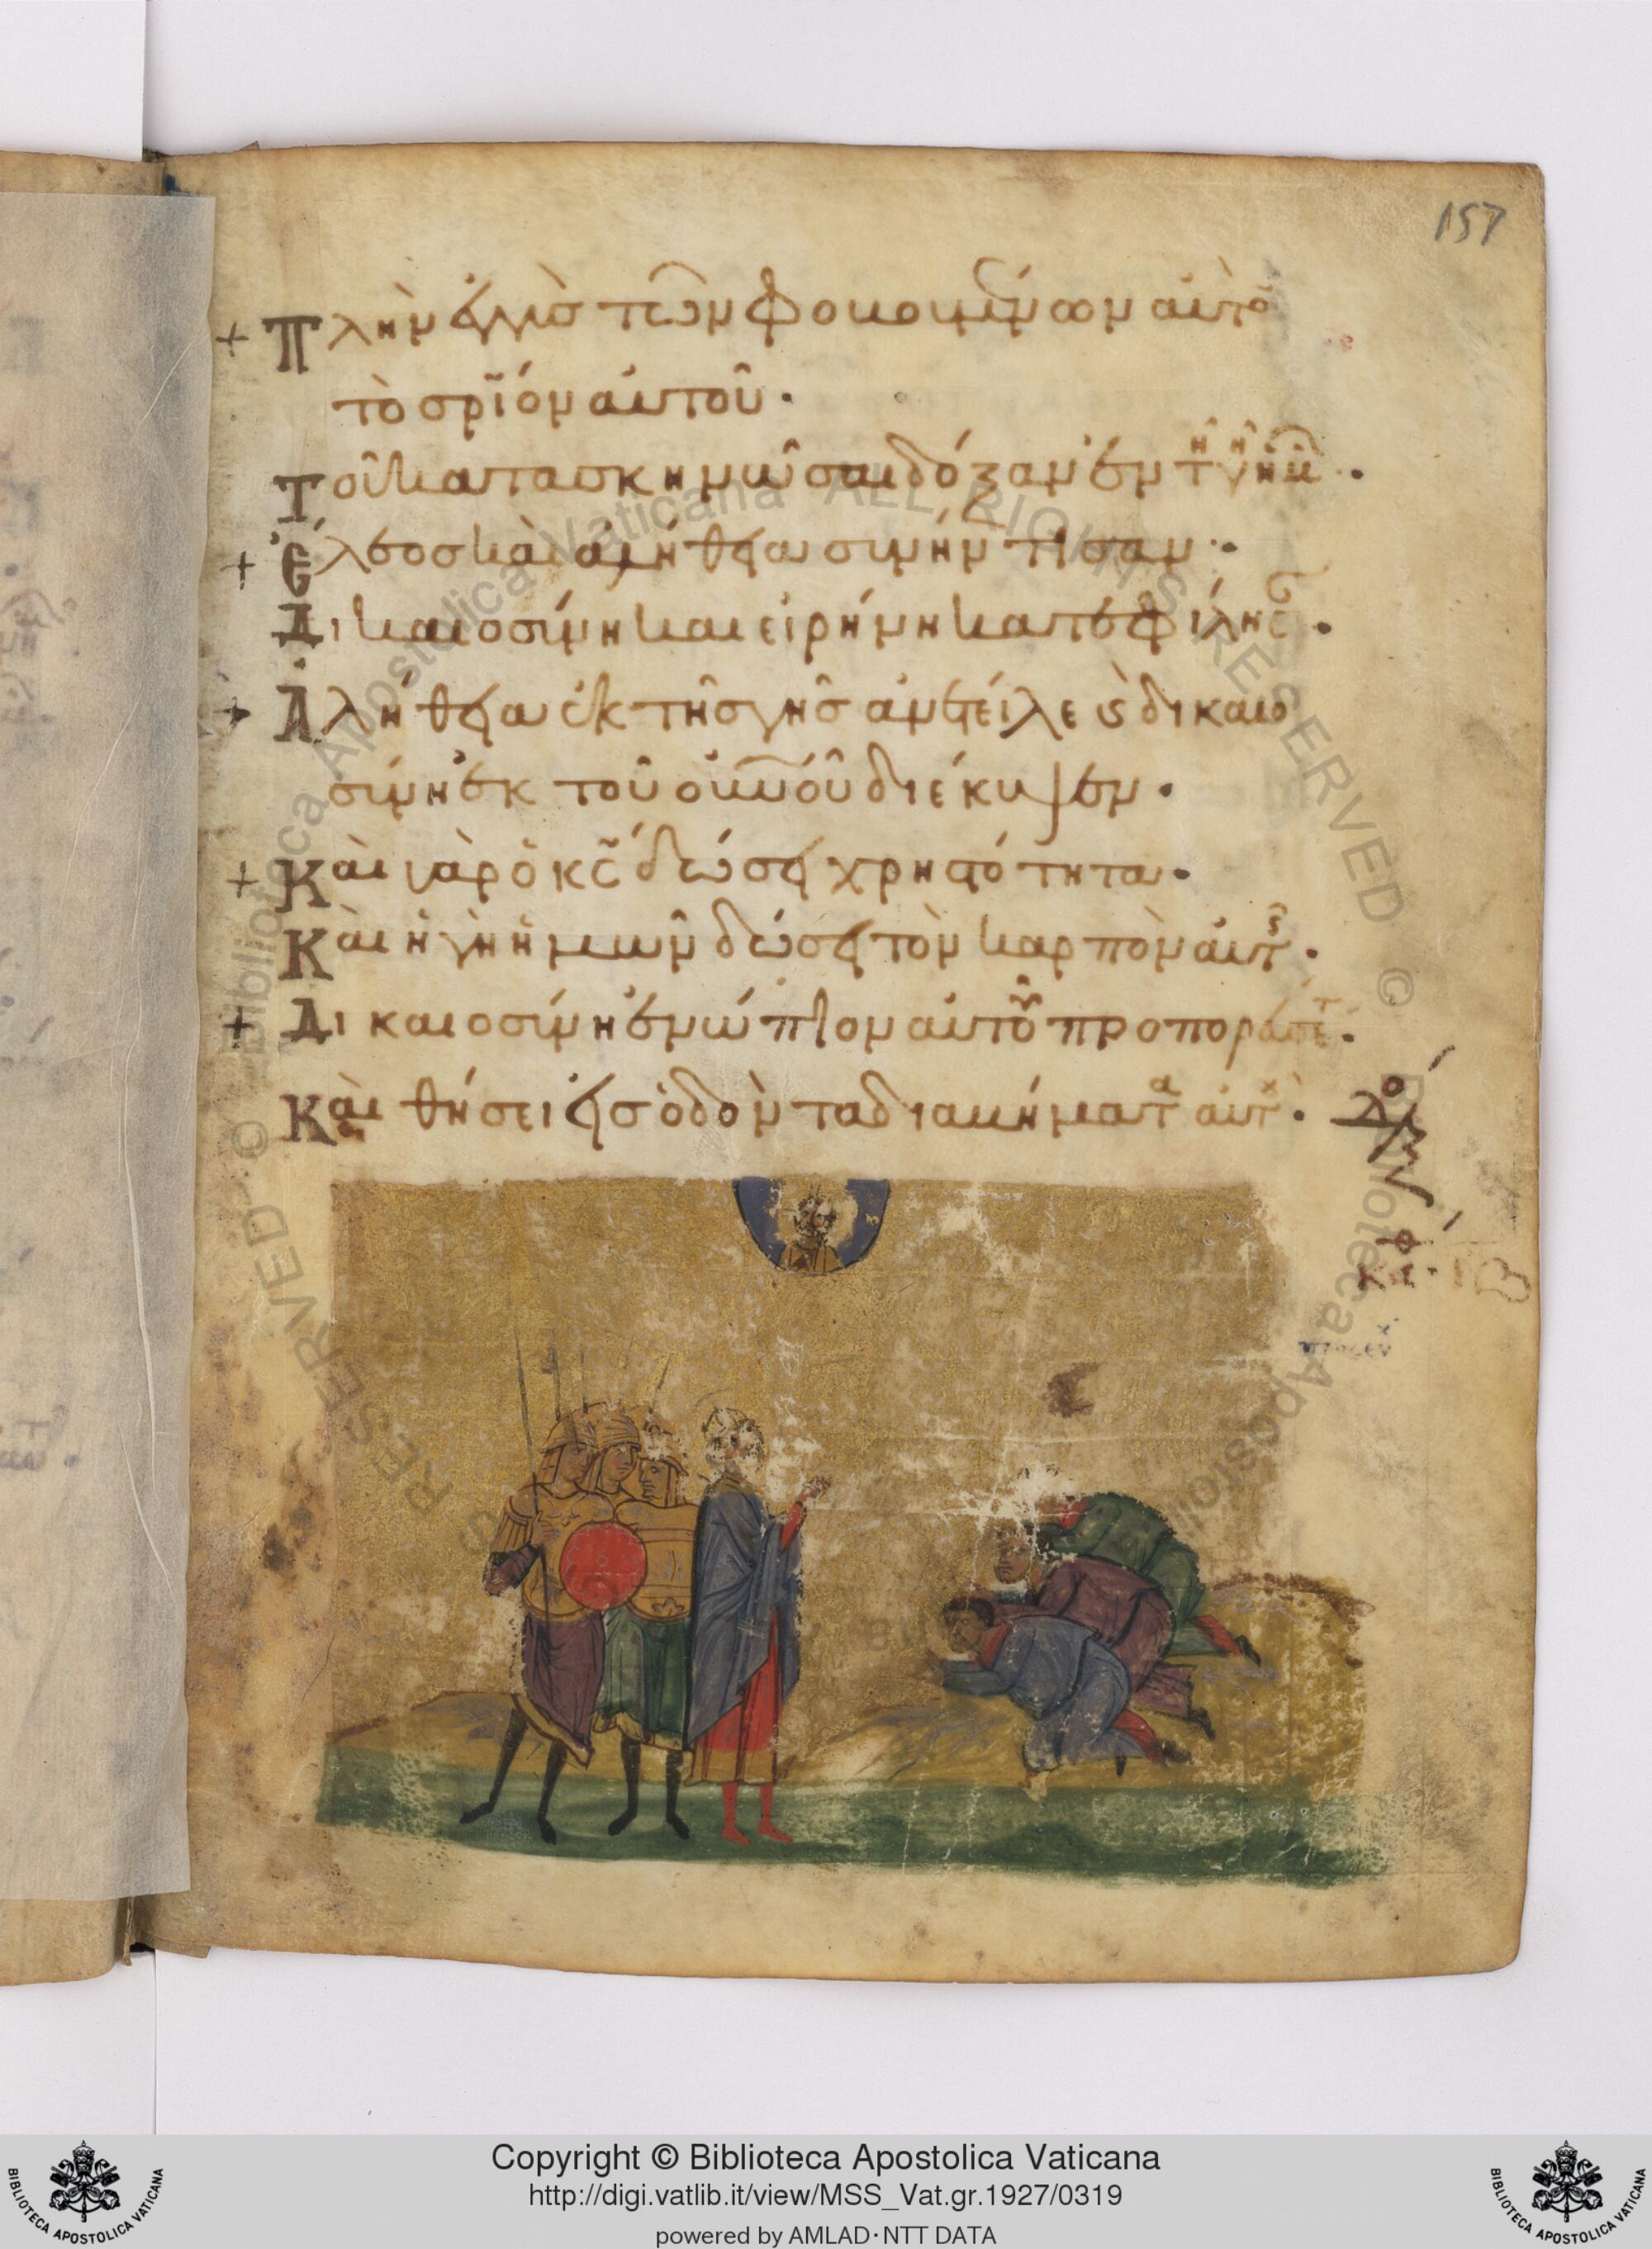 157
+ Πλὴν ἐγγὺς τῶν φοβουμένων αὐτὸ
τὸ σρῖόν αὐτοῦ·
Τοῦ κατασκηνῶσαι δόξαν ἐν τῆ γῆ ἡμῶν·
+ Ἔλεος καὶ ἀλήθεια συνήντησαν·
Δικαιοσύνη καὶ εἰρήνη κατεφίλησαν·
+ Ἀλήθεια ἐκ τῆς γῆς ἀνέτειλε ϗ δικαιο
σύνη ἐκ τοῦ οὐνοῦ διέκυψεν·
+ Καὶ γὰρ ὁ κς δώσει χρηστότητα·
Καὶ ἡ γῆ ἡμῶν δώσει τὸν καρπὸν αὐτῆς·
+ Δικαιοσύνη ἐνώπιον αὐτοῦ προπορεύσεται·
Καὶ θήσει εἰς ὁδὸν τὰ διαβήματα αὐτοῦ·
Copyright © Biblioteca Apostolica Vaticana
http://digi.vatlib.it/view/MSS_Vat.gr.1927/0319
powered by AMLAD·NTT DATA
BIBLIOTECA APOSTOLICA VATICANA
BIBLIOTECA APOSTOLICA VATICANA